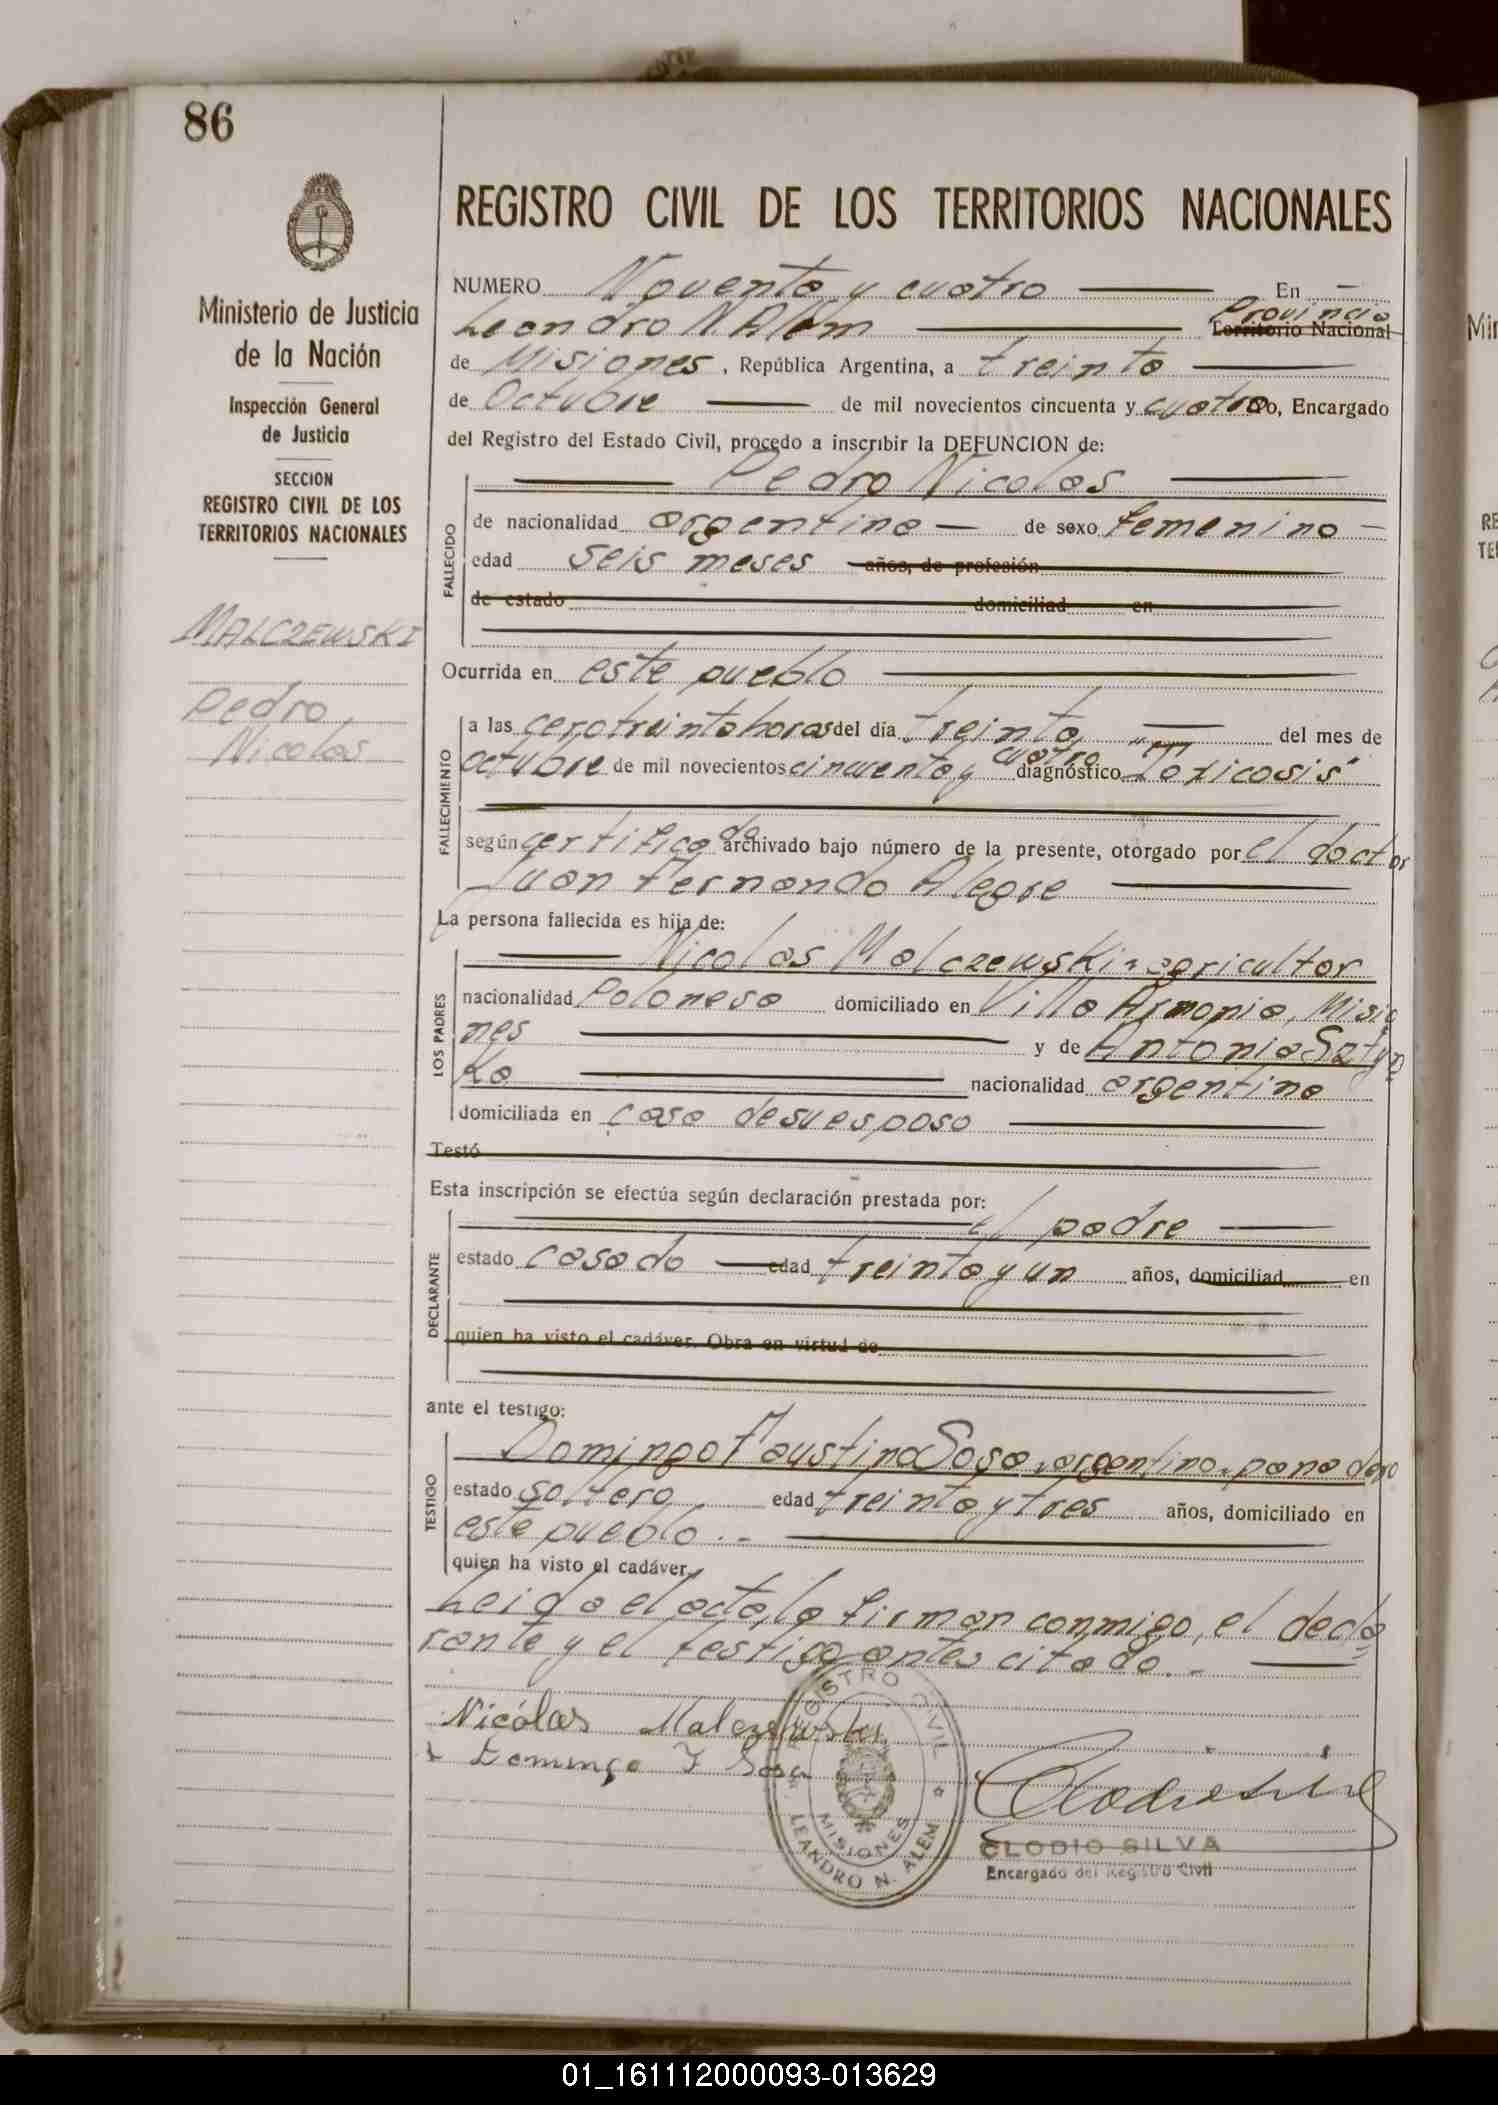 86
REGISTRO CIVIL DE LOS TERRITORIOS NACIONALES
Ministerio de Justicia
de la Nación
Inspección General
de Justicia
SECCION
REGISTRO CIVIL DE LOS
TERRITORIOS NACIONALES
MALCZEWSKI
Pedro,
Nicolas
NUMERO Noventa y cuatro En
Provincia
Leandro N. Alem Territorio Nacional
de Misiones, República Argentina, a treinta
de Octubre de mil novecientos cincuenta y cuatro yo, Encargado
del Registro del Estado Civil, procedo a inscribir la DEFUNCION de:
Pedro Nicolas
FALLECIDO
de nacionalidad argentina de sexo femenino
edad seis meses años, de profesión
de estado domiciliad en
Ocurrida en este pueblo
FALLECIMIENTO
a las cero treinta horas del día treinta del mes de
octubre de mil novecientos cincuenta y cuatro diagnóstico "Toxicosis"
según certificado archivado bajo número de la presente, otorgado por el doctor
Juan Fernando Alegre
La persona fallecida es hija de:
LOS PADRES
Nicolas Malczewski - agricultor
nacionalidad Polonesa domiciliado en Villa Armonia, Misio
nes y de Antonia
ka nacionalidad argentina
domiciliada en casa de su esposo
Testó
Esta inscripción se efectúa según declaración prestada por:
DECLARANTE
el padre
estado casado edad treinta y un años, domiciliad en
quien ha visto el cadáver. Obra en virtud de
ante el testigo:
TESTIGO
Domingo Faustino Sosa, argentino, panadero
estado soltero, edad treinta y tres años, domiciliado en
este pueblo.-
quien ha visto el cadáver.
Leida el acta, la firman conmigo, el decla
rante y el testigo antes citado.-
Nicólas Malczewski
Domingo F Sosa
REGISTRO CIVIL
MISIONES
LEANDRO N. ALEM
CLODIO SILVA
Encargado del Registro Civil
01_161112000093-013629